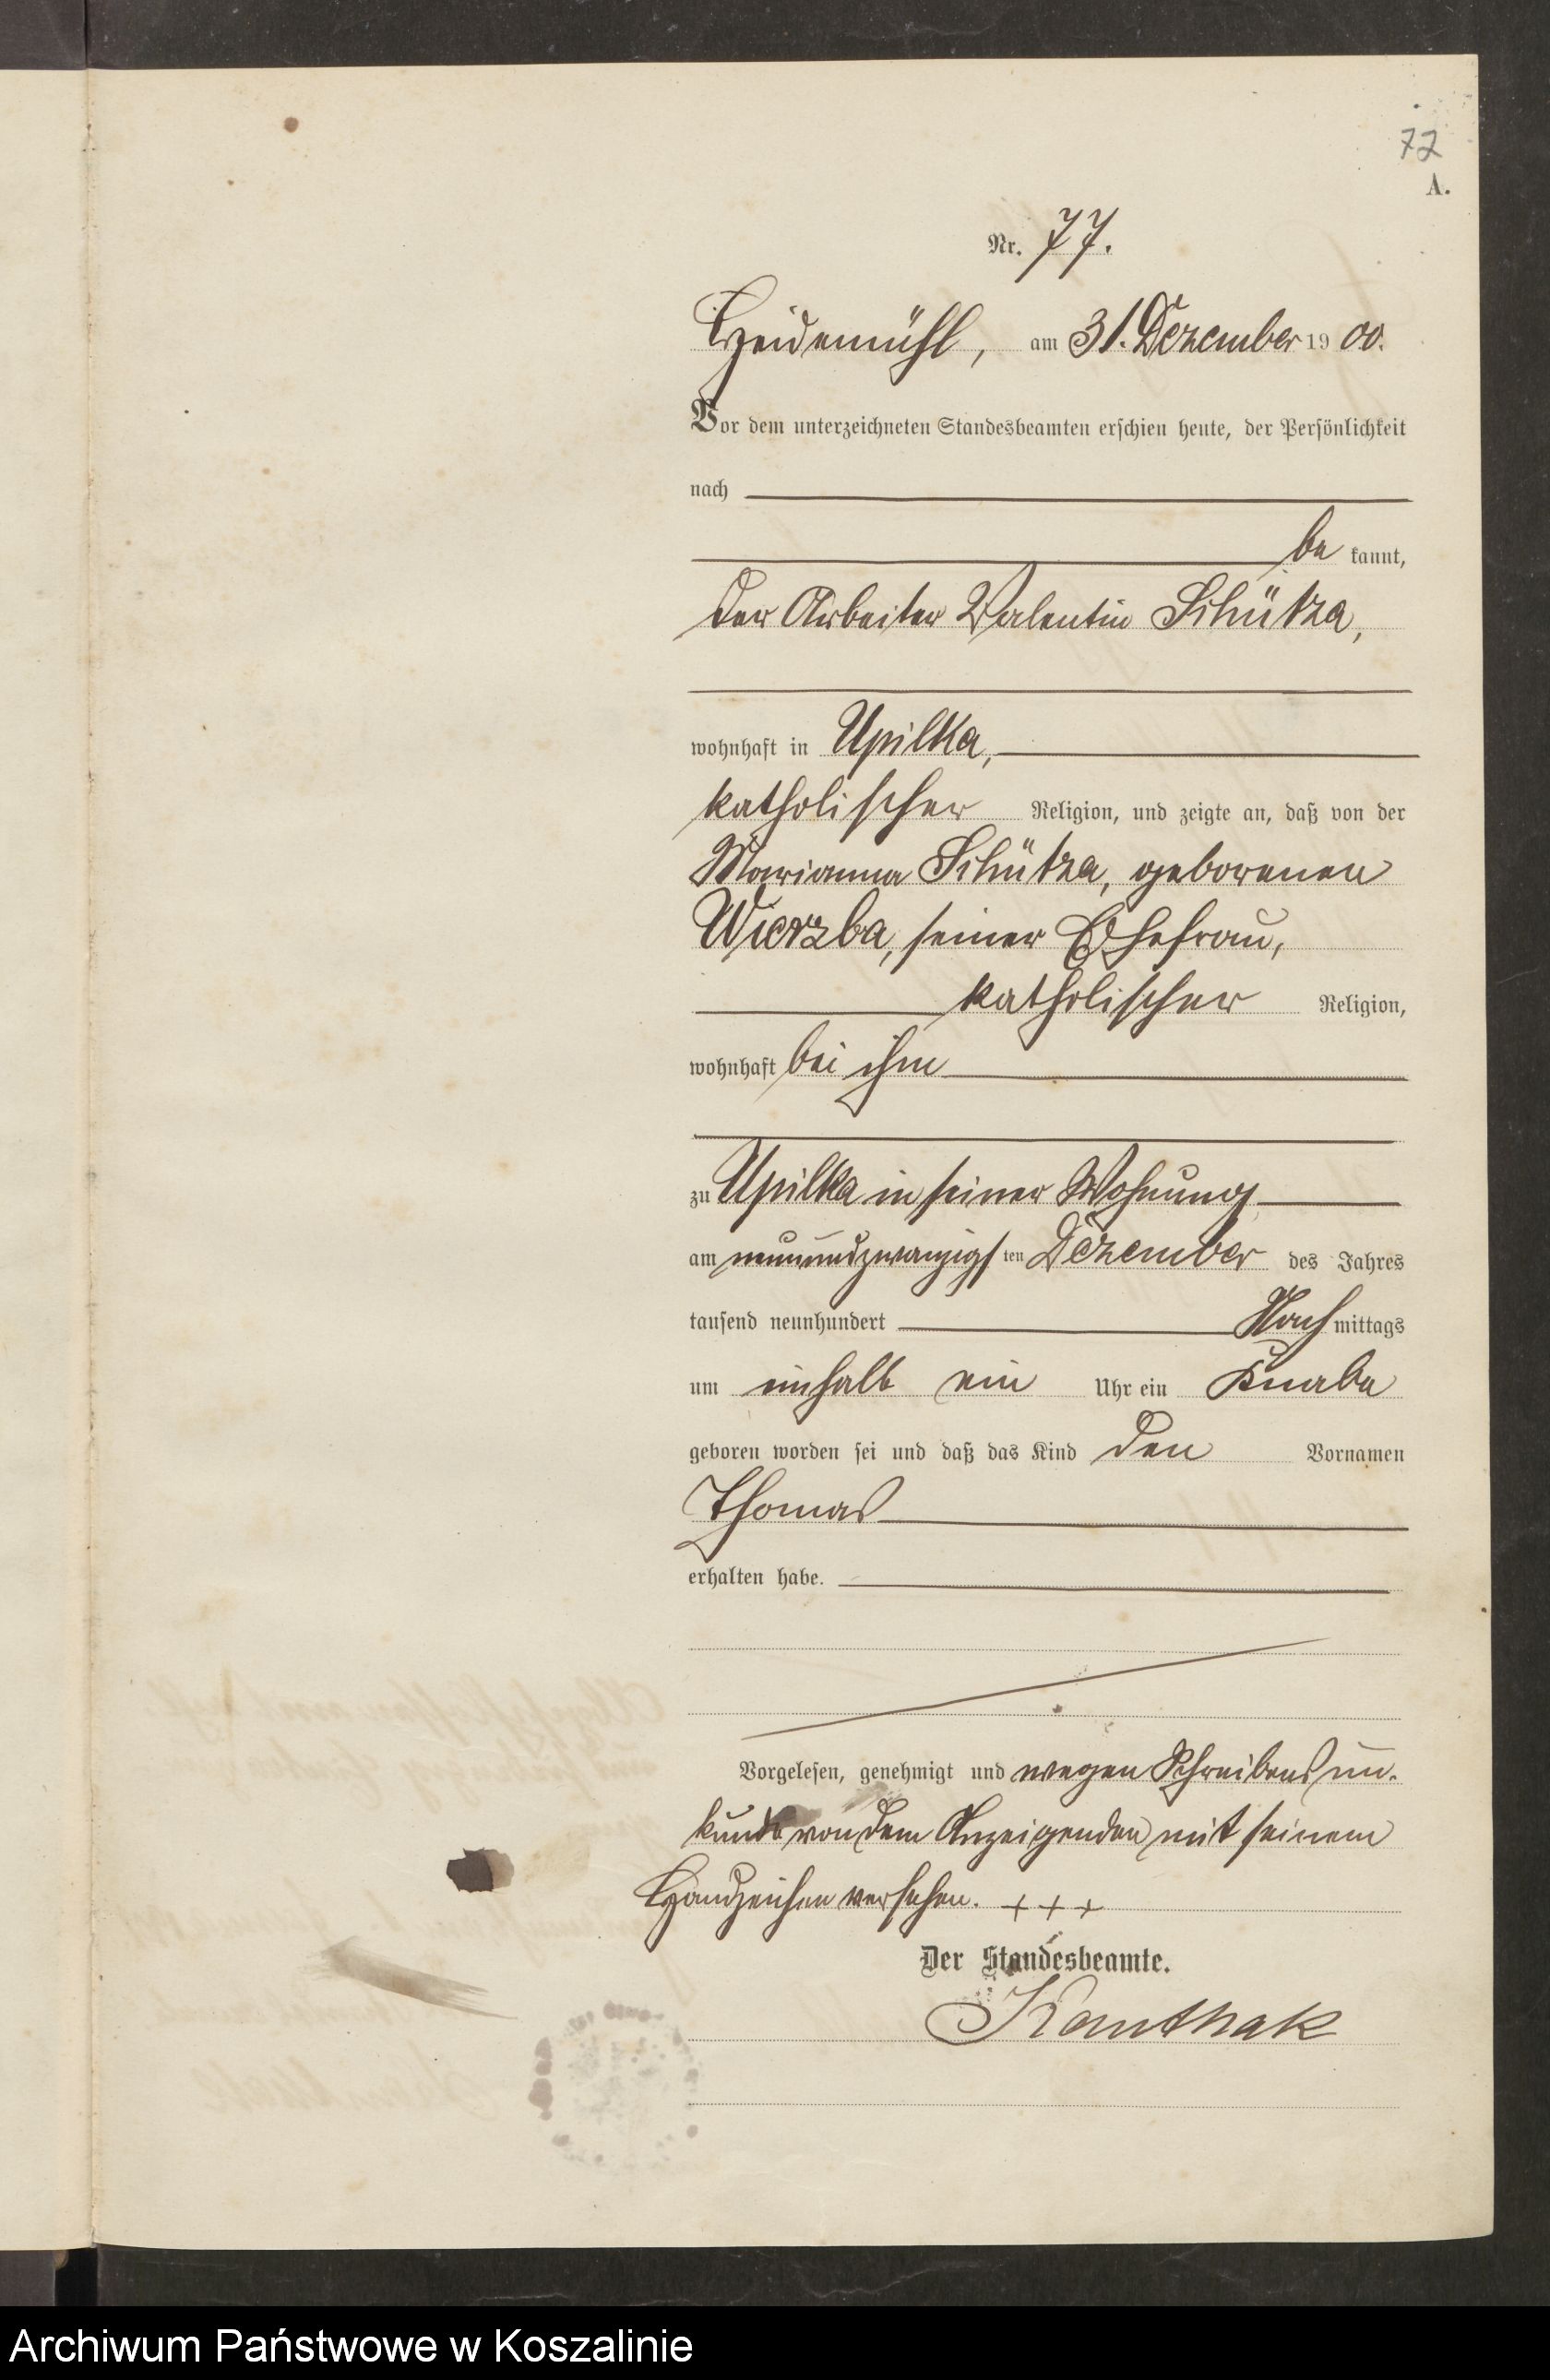 72
A.
Nr. 77.
Heidemühl, am 31. Dezember 1900.
Vor dem unterzeichneten Standesbeamten erschien heute, der Persönlichkeit
nach
be kannt,
der Arbeiter Valentin Schütza,
wohnhaft in Upilka,
katholischer Religion, und zeigte an, daß von der
Marianna Schütza, geborenen
Wierzba, seiner Ehefrau,
katholischer Religion,
wohnhaft bei ihm
zu Upilka in seiner Wohnung
am neunundzwanzigsten Dezember des Jahres
tausend neunhundert Nach mittags
um einhalb ein Uhr ein Knabe
geboren worden sei und daß das Kind den Vornamen
Thomas
erhalten habe.
Vorgelesen, genehmigt und wegen Schreibensun-
kunde von dem Anzeigenden mit seinem
Handzeichen versehen. +++
Der Standesbeamte.
Kanthak
Archiwum Państwowe w Koszalinie